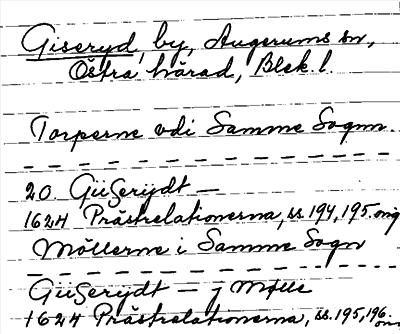 Giseryd, by, Augerums sn,
Östra härad, Blek. l.
Torperne vdi Samme Sognn.
20. Giißerÿdt —
1624 Prästrelationerna, ss. 194, 195. orig
Möllerne i Samme Sogn
Giißerydt — j Mølle
1624 Prästrelationerna, ss. 195, 196.